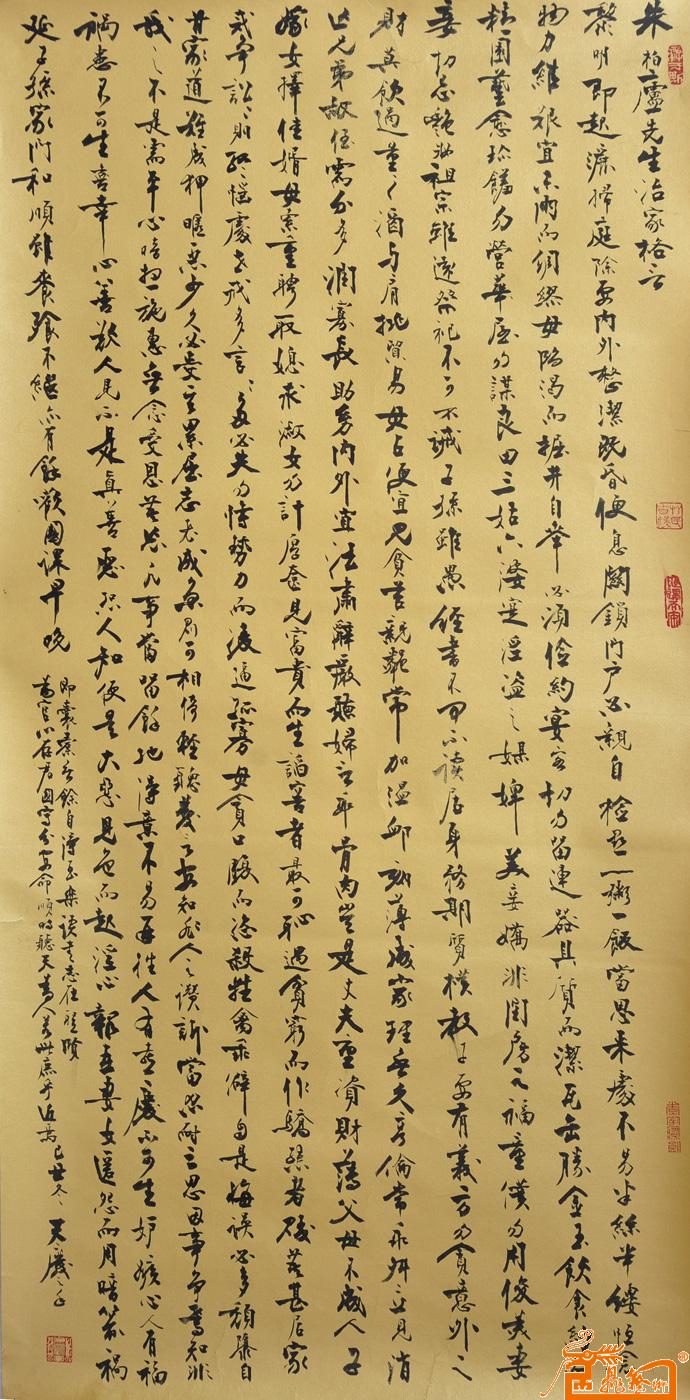 朱柏廬先生治家格言
黎明即起灑掃庭除要內外整潔既昏便息關鎖門戶必親自檢點一粥一飯當思來處不易半絲半縷恒念
物力維艱宜未雨而綢繆毋臨渴而掘井自奉必須儉約宴客切勿留連器具質而潔瓦缶勝金玉飲食約而
精園蔬愈珍饈勿營華屋勿謀良田三姑六婆寔淫盜之媒婢美妾嬌非閨房之福童僕勿用俊美妻
妾切忌艷妝祖宗雖遠祭祀不可不誠子孫雖愚經書不可不讀居身務期質樸教子要有義方勿貪意外之
財莫飲過量之酒与肩挑貿易毋占便宜見貧苦親鄰常加溫卹刻薄成家理無久享倫常乖舛立見消
亡兄弟叔侄需分多潤寡長幼內外宜法肅辭嚴聽婦言乖骨肉豈是丈夫重資財薄父母不成人子
嫁女擇佳婿毋索重聘取媳求淑女勿計厚奩見富貴而生諂容者最可恥過貧窮而作驕態者賤莫甚居家
戒爭訟訟則終凶處世戒多言言多必失勿恃勢力而凌逼孤寡毋貪口腹而恣殺牲禽乖僻自是悔誤必多頹隳自
甘家道難成狎暱惡少久必受其累屈志老成急則可相倚輕聽發言安知非人之譖訴當忍耐三思因事爭焉知非
我之不是需平心暗想施惠無念受恩莫忘凡事當留餘地得意不宜再往人有喜慶不可生妒嫉心人有禍
禍患不可生喜幸心善欲人見不是真善惡恐人知便是大惡見色而起淫心報在妻女匿怨而用暗箭禍
延子孫家門和順雖饔飧不繼亦有餘歡國課早晚
即囊橐無餘自得至樂讀書志在聖賢
為官心存君國守分安命順時聽天為人若此庶乎近焉 己丑冬